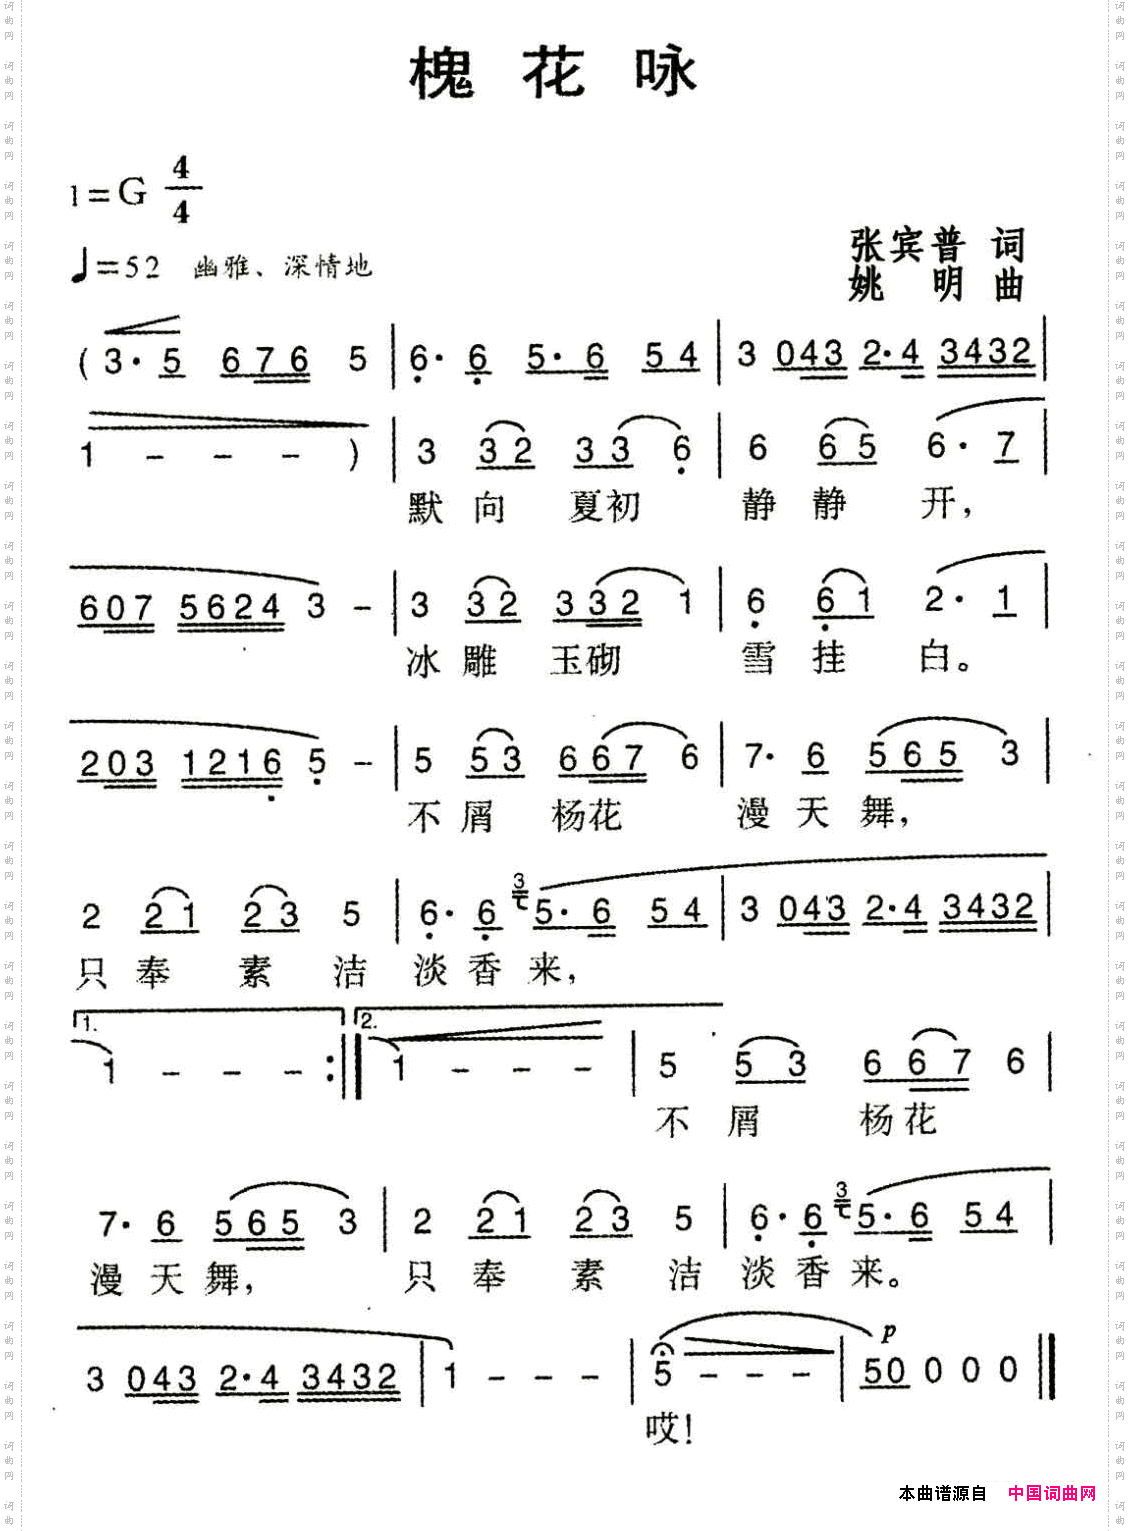 槐花咏
1=G 4/4
♩=52 幽雅、深情地
张宾普 词
姚明 曲
( 3· 5 6 7 6 5 | 6· 6 5· 6 5 4 | 3 0 4 3 2· 4 3 4 3 2 |
1 - - - ) | 3 3 2 3 3 6 | 6 6 5 6· 7 |
默 向 夏初 静 静 开,
6 0 7 5 6 2 4 3 - | 3 3 2 3 3 2 1 | 6 6 1 2· 1 |
冰 雕 玉砌 雪 挂 白。
2 0 3 1 2 1 6 5 - | 5 5 3 6 6 7 6 | 7· 6 5 6 5 3 |
不 屑 杨花 漫 天 舞,
2 2 1 2 3 5 | 6· 6 3 5· 6 5 4 | 3 0 4 3 2· 4 3 4 3 2 |
只 奉 素 洁 淡 香 来,
1. 2.
1 - - - :| 1 - - - | 5 5 3 6 6 7 6 |
不 屑 杨花
7· 6 5 6 5 3 | 2 2 1 2 3 5 | 6· 6 3 5· 6 5 4 |
漫 天 舞, 只 奉 素 洁 淡 香 来。
3 0 4 3 2· 4 3 4 3 2 | 1 - - - | 5 - - - | p 5 0 0 0 0 ||
哎!
本曲谱源自 中国词曲网